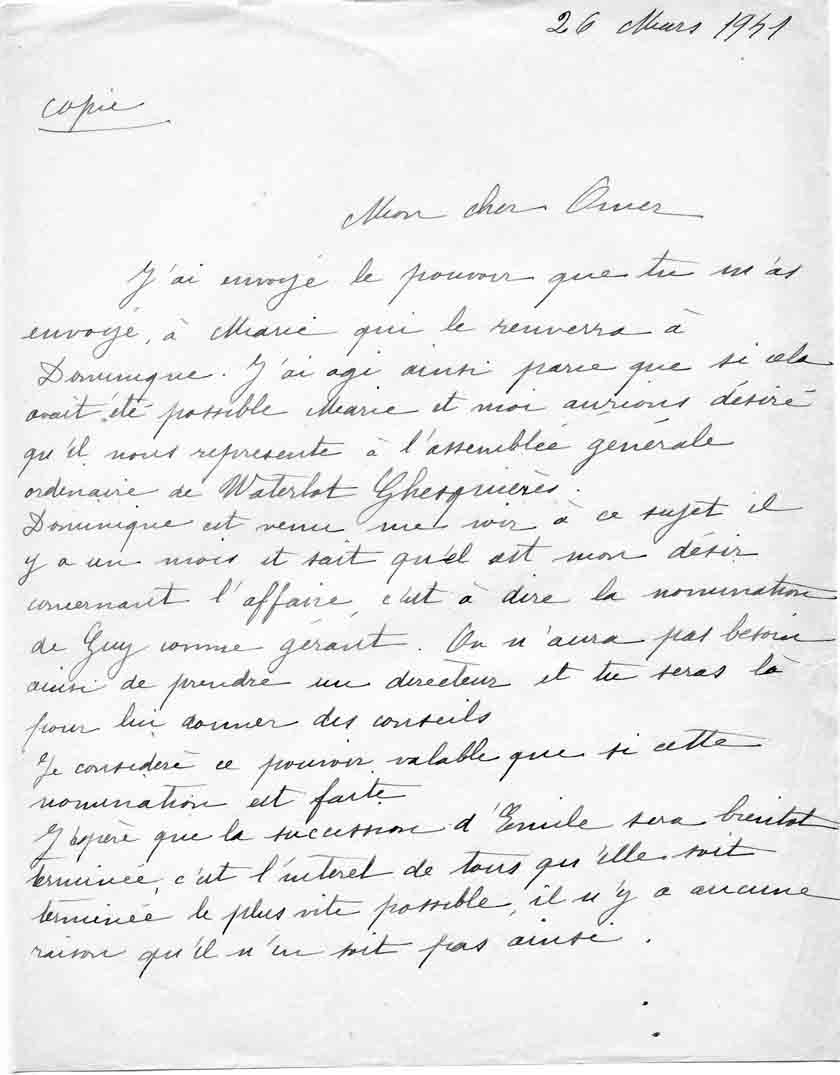 26 Mars 1941
copie
Mon cher Omer
J'ai envoyé le pouvoir que tu m'as
envoyé, à Marie qui le renverra à
Dominique. J'ai agi ainsi parce que si cela
avait été possible Marie et moi aurions désiré
qu'il nous représente à l'assemblée générale
ordinaire de Waterlot Ghesquières.
Dominique est venu me voir à ce sujet il
y a un mois et sait quel est mon désir
concernant l'affaire, c'est à dire la nomination
de Guy comme gérant. On n'aura pas besoin
ainsi de prendre un directeur et tu seras là
pour lui donner des conseils
Je considère ce pouvoir valable que si cette
nomination est faite
J'espère que la succession d'Emile sera bientot
terminée, c'est l'interet de tous qu'elle soit
terminée le plus vite possible, il n'y a aucune
raison qu'il n'en soit pas ainsi.